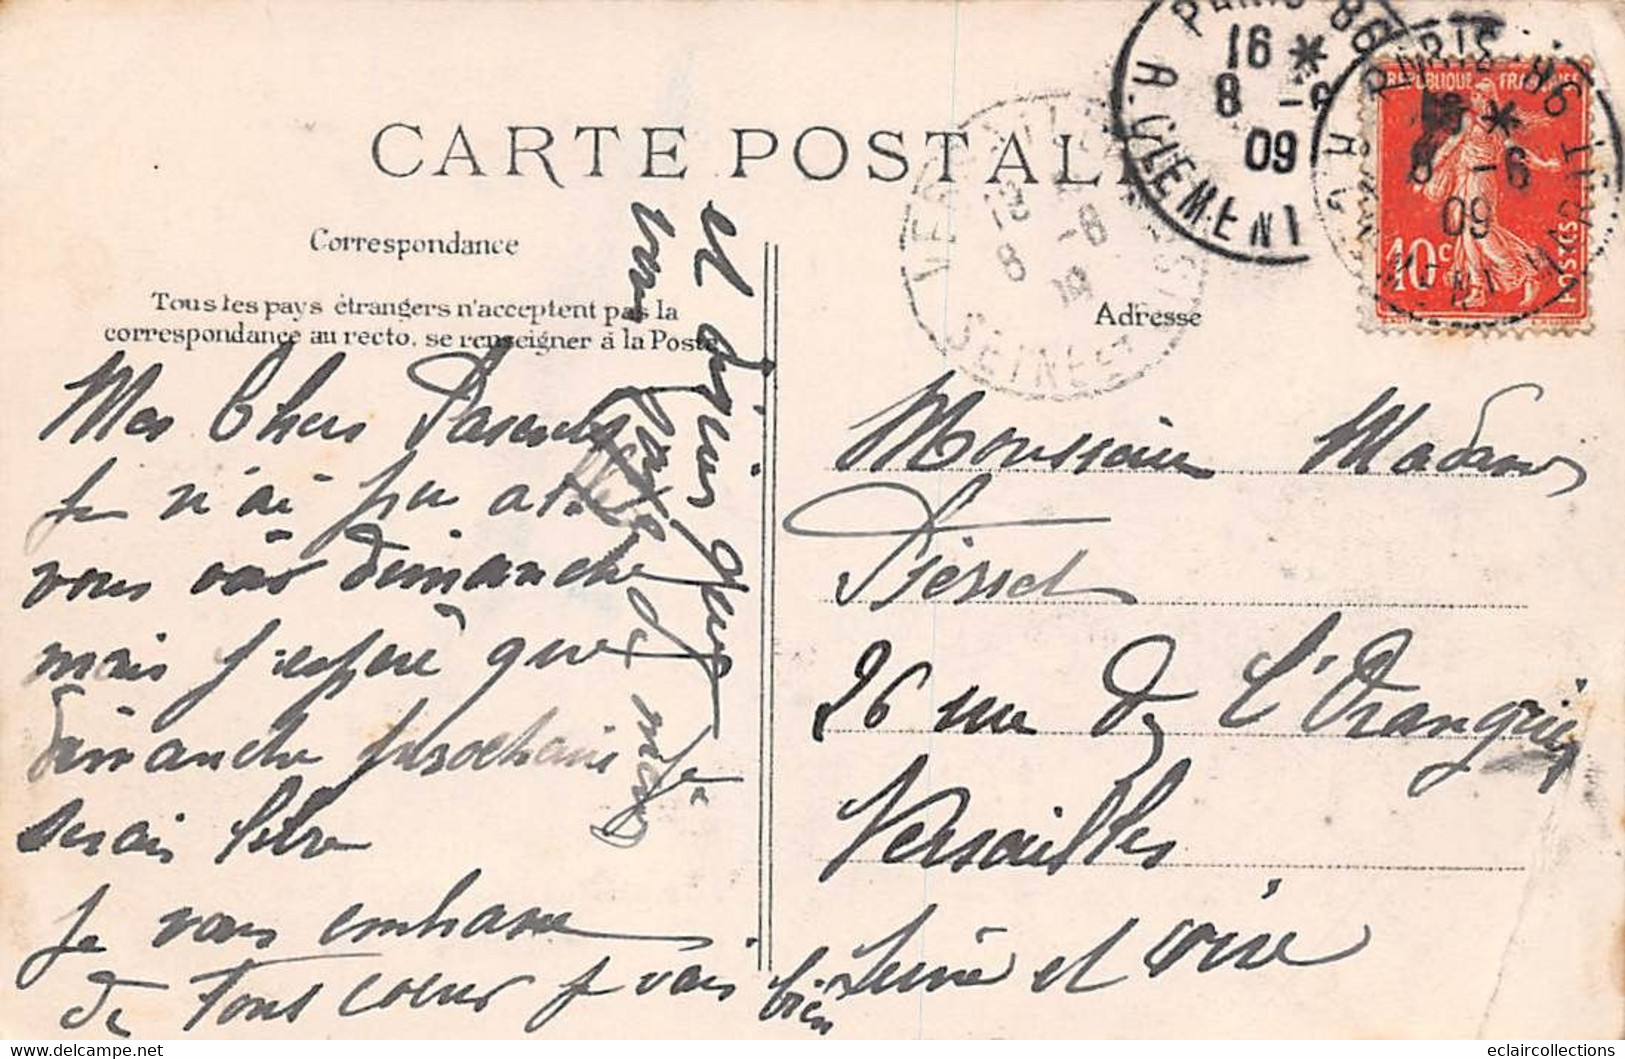 CARTE POSTALE
Correspondance
Tous les pays étrangers n'acceptent pas la
correspondance au recto, se renseigner à la Poste
Adresse
Mes Chers Parents
Je n'ai pu
vous voir dimanche
mais j'espère que
dimanche prochain je
serai libre
Je vous embrasse
de Tout coeur je vais bien
et depuis que
Monsieur Madame
26 rue de L'Orangerie
Versailles
Seine et oise
PARIS 86
16 *
8 -6
09
R. CLEMENT
PARIS 86
*
8 -6
09
SEINE
8 -6
REPUBLIQUE FRANÇAISE
10c
POSTES
delcampe.net
eclaircollections